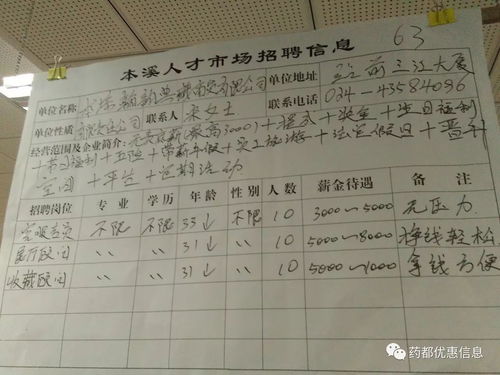 63
本溪人才市场招聘信息
单位名称 本溪 商贸有限公司 单位地址 站前三江大厦
单位性质 有限责任公司 联系人 宋女士 联系电话 024-43584096
经营范围及企业简介: 无责底薪(最高3000)+提成+奖金+生日福利
+节日福利+五险+带薪年假+员工旅游+法定假日+晋升
空间+平台+定期活动
招聘岗位 专业 学历 年龄 性别 人数 薪金待遇 备注
客服专员 不限 不限 35↓ 不限 10 3000~5000 无压力
医疗顾问 〃 〃 31↓ 〃 10 5000~8000 挣钱轻松
收藏顾问 〃 〃 31↓ 〃 10 5000~1000 拿钱方便
药都优惠信息